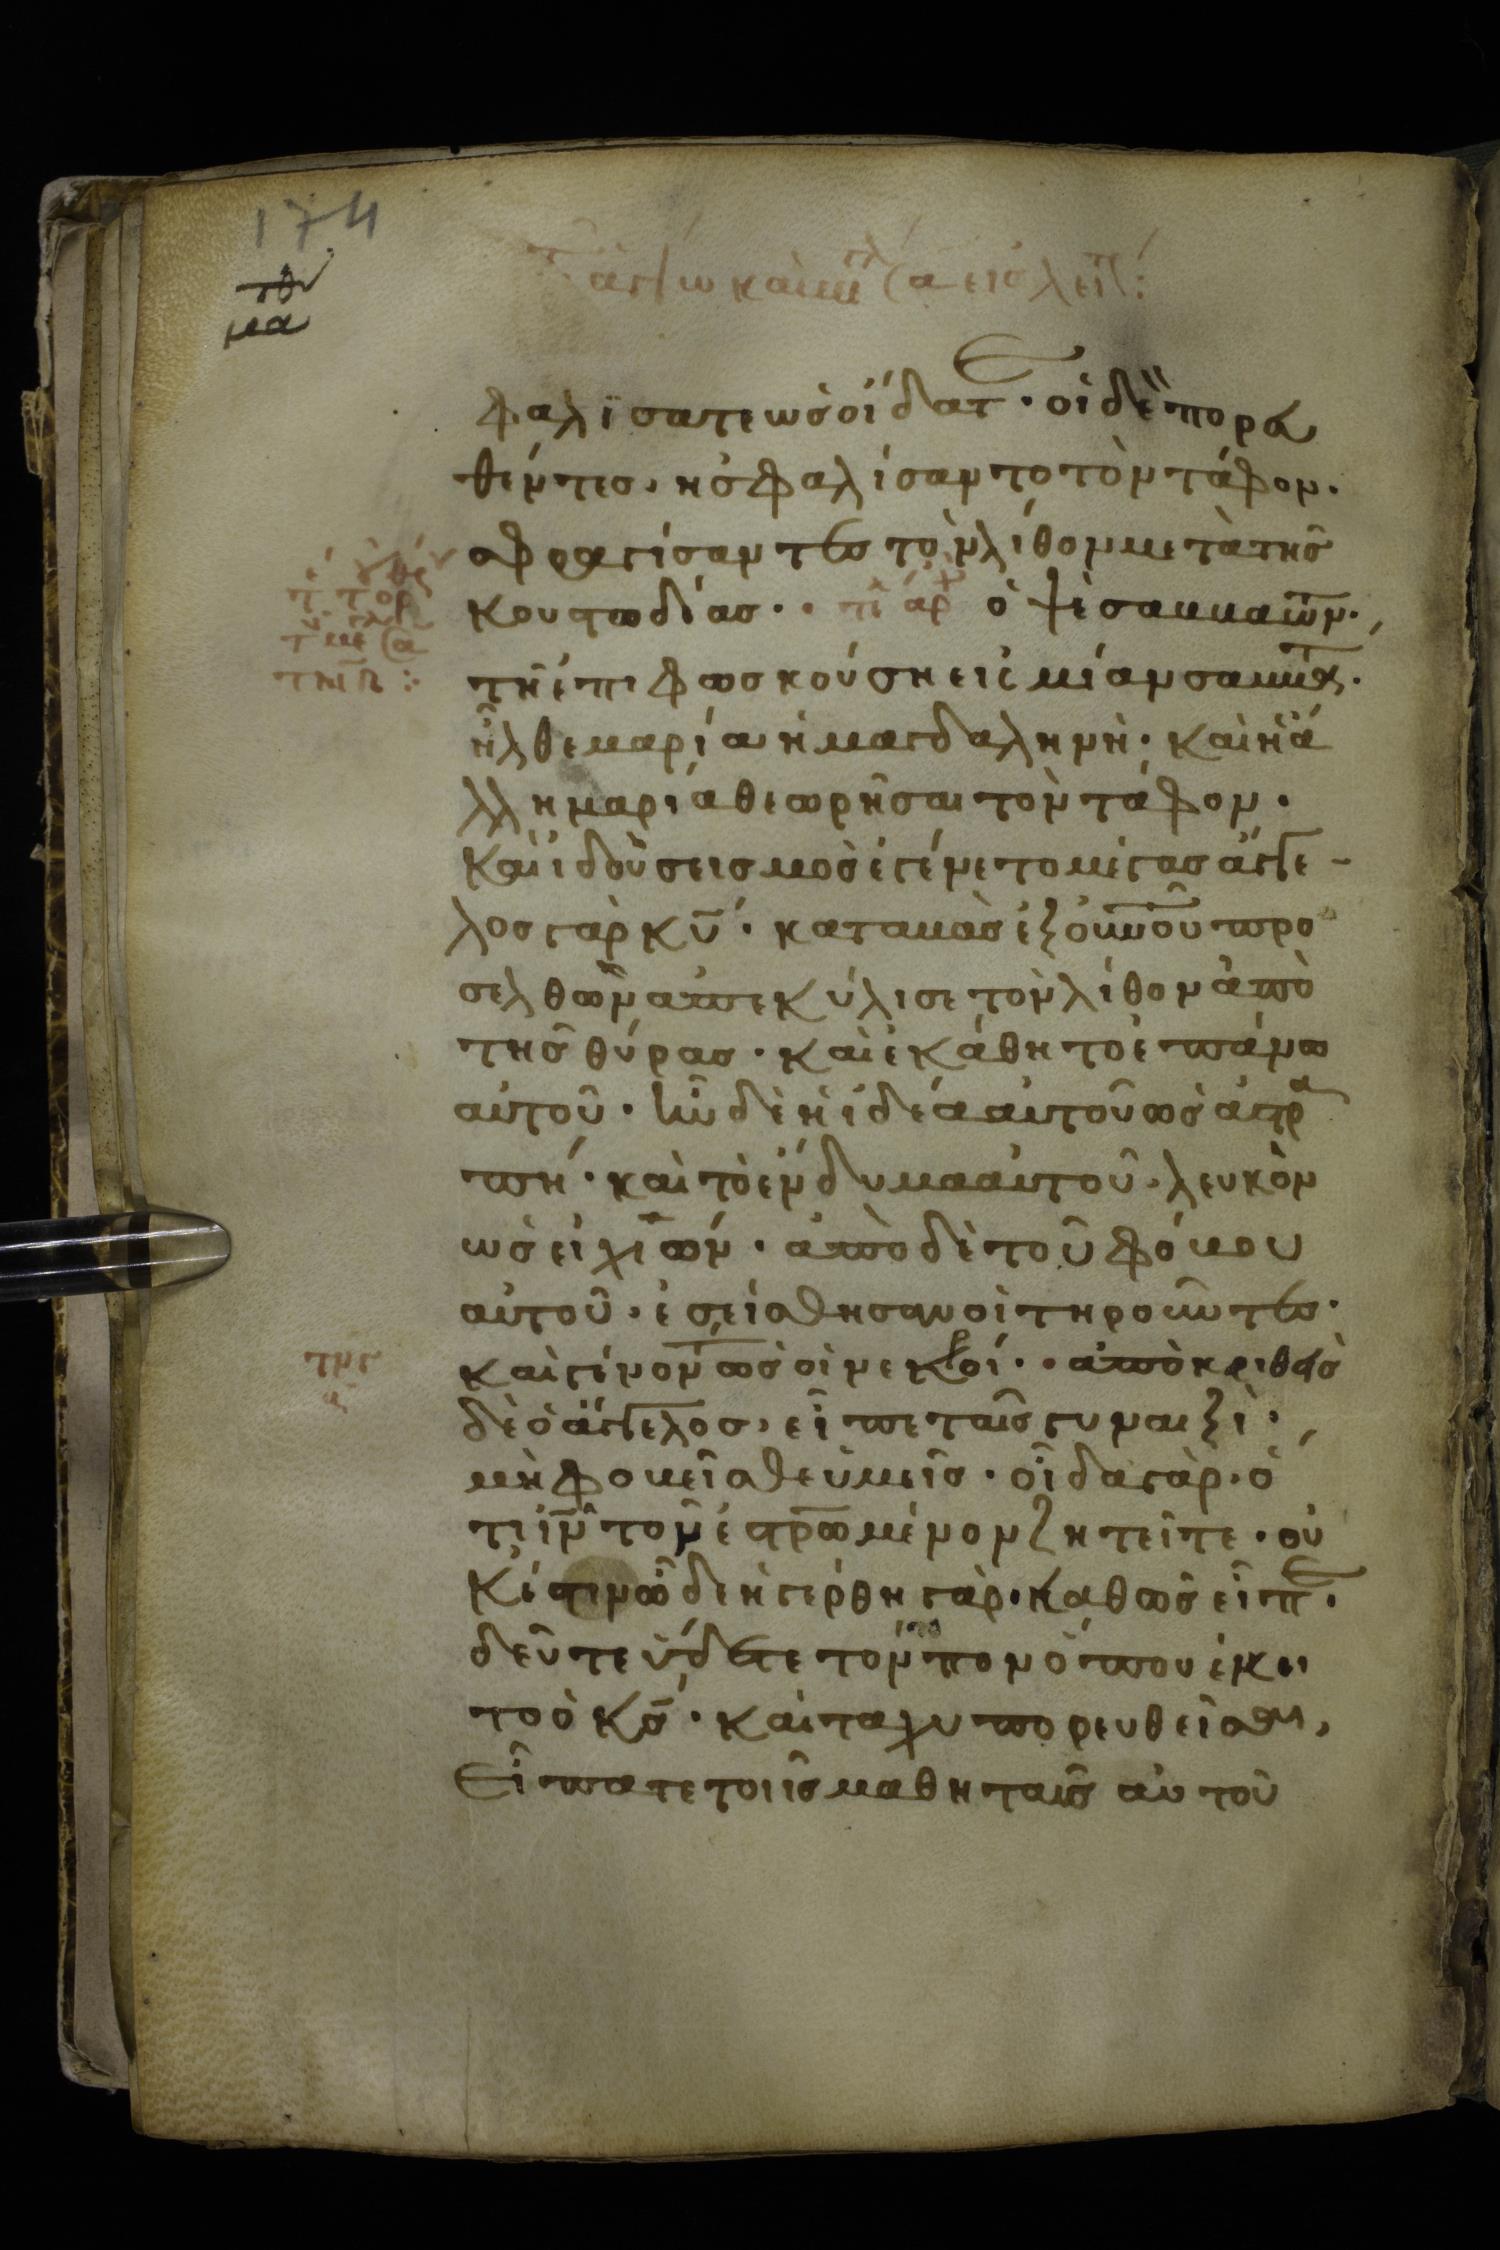 174
μεα
φαλίσατε ὡς οἴδατε · οἱ δὲ πορευ
θέντες · ἠσφαλίσαντο τὸν τάφον ·
σφραγίσαντες τὸν λίθον μετὰ τῆς
κουστωδίας · ὀψὲ σαββάτων ·
τῆ ἐπιφωσκούση εἰς μίαν σαββάτων ·
ἦλθε μαρία ἡ μαγδαληνὴ · καὶ ἡ ἄ
λλη μαρία θεωρῆσαι τὸν τάφον ·
καὶ ἰδοὺ σεισμὸς ἐγένετο μέγας ἄγγε-
λος γὰρ κυ · καταβὰς ἐξ οὐνοῦ προ
σελθὼν ἀπεκύλισε τὸν λίθον ἀπὸ
τῆς θύρας · καὶ ἐκάθητο ἐπάνω
αὐτοῦ · ἦν δὲ ἡ ἰδέα αὐτοῦ ὡς ἀστρα
πή · καὶ τὸ ἔνδυμα αὐτοῦ · λευκὸν
ὡσεὶ χιών · ἀπὸ δὲ τοῦ φόβου
αὐτοῦ · ἐσείσθησαν οἱ τηροῦντες ·
καὶ ἐγένοντο ὡσεὶ νεκροί · ἀποκριθεὶς
δὲ ὁ ἄγγελος · εἶπε ταῖς γυναιξὶ ·
μὴ φοβεῖσθε ὑμεῖς · οἶδα γὰρ · ὅ
τι ιν τὸν ἐστρωμένον ζητεῖτε · οὐ
κ ἔστιν ὧδε ἠγέρθη γὰρ · καθὼς εἶπε ·
δεῦτε ἴδετε τὸν τόπον ὅπου ἔκει
το ὁ κς · καὶ ταχὺ πορευθεῖσαι,
εἴπατε τοῖς μαθηταῖς αὐτοῦ